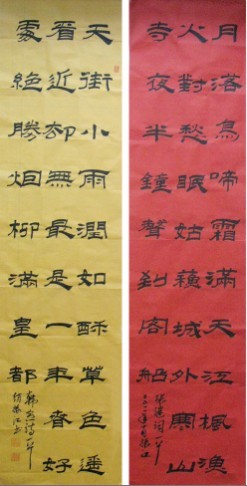 月落烏啼霜滿天江楓漁
火對愁眠姑蘇城外寒山
寺夜半鐘聲到客船
張繼詩一首
天街小雨潤如酥草色遙
看近却無最是一年春好
處絕勝烟柳滿皇都
韓愈詩一首